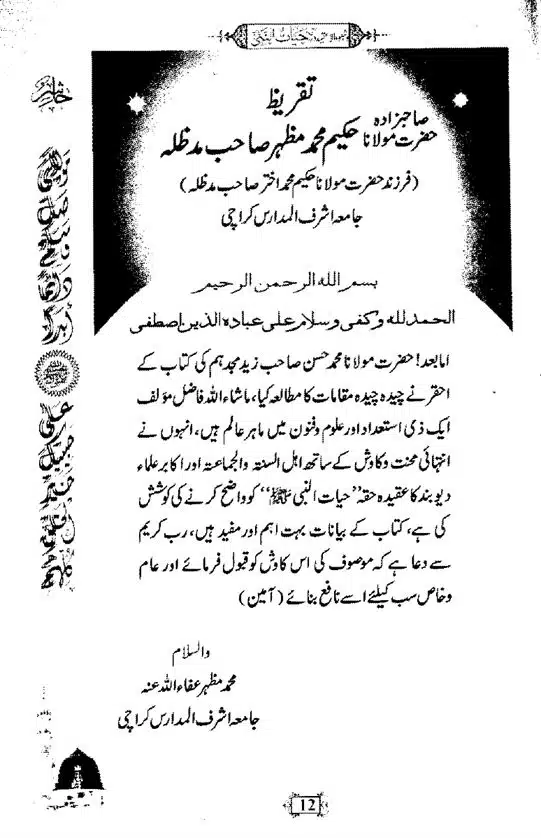 حیات النبی
تقریظ
صاحبزادہ
حضرت مولانا حکیم محمد مظہر صاحب مدظلہ
(فرزند حضرت مولانا حکیم محمد اختر صاحب مدظلہ)
جامعہ اشرف المدارس کراچی
بسم الله الرحمن الرحيم
الحمدلله وكفى وسلام على عباده الذين اصطفى
اما بعد! حضرت مولانا محمد حسن صاحب زید مجدہم کی کتاب کے
احقر نے چیدہ چیدہ مقامات کا مطالعہ کیا، ماشاء اللہ فاضل مؤلف
ایک ذی استعداد اور علوم وفنون میں ماہر عالم ہیں، انہوں نے
انتہائی محنت وکاوش کے ساتھ اہل السنۃ والجماعۃ اور اکابر علماء
دیوبند کا عقیدہ حقہ ”حیات النبی ﷺ“ کو واضح کرنے کی کوشش
کی ہے، کتاب کے بیانات بہت اہم اور مفید ہیں، رب کریم
سے دعا ہے کہ موصوف کی اس کاوش کو قبول فرمائے اور عام
وخاص سب کیلئے اسے نافع بنائے (آمین)
والسلام
محمد مظہر عفاء اللہ عنہ
جامعہ اشرف المدارس کراچی
12